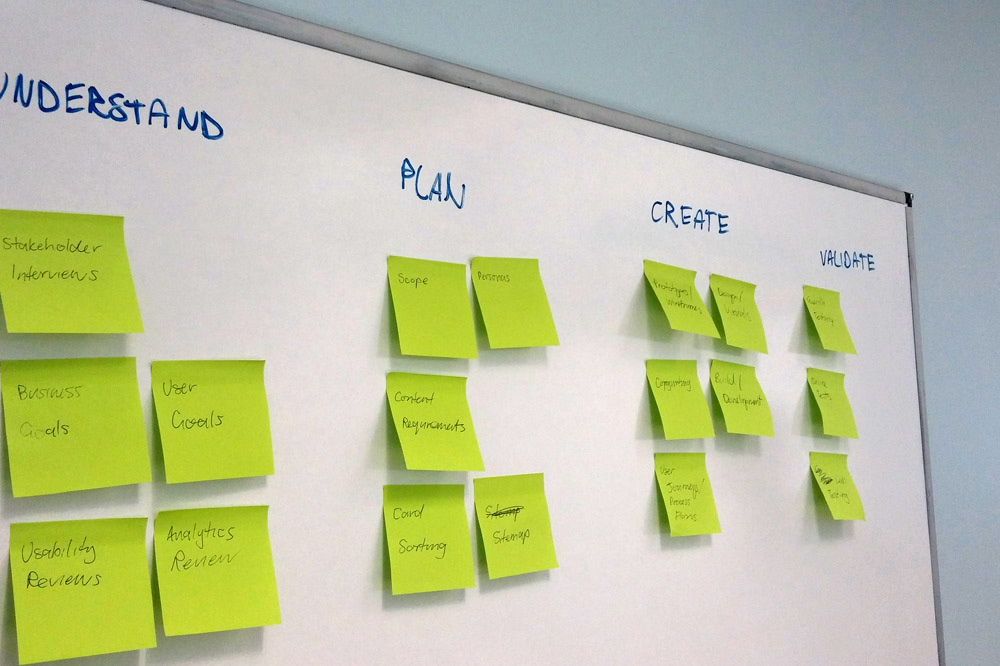 UNDERSTAND
Stakeholder
Interviews
Business
Goals
User
Goals
Usability
Reviews
Analytics
Review
PLAN
Scope
Personas
Content
Requirements
Card
Sorting
Sitemap
CREATE
Prototypes/
Wireframes
Design/
Visuals
Copywriting
Build/
Development
User
Journeys/
Process
Flows
VALIDATE
Testing
Tests
Testing